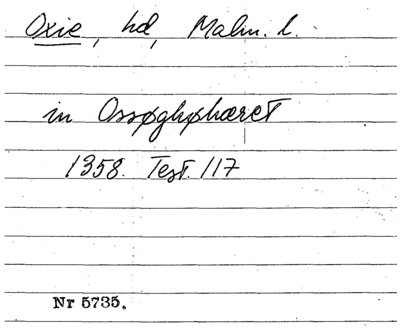 Oxie, hd, Malm. l.
in Ossøghøhæret
1358. Test. 117
Nr 5735.